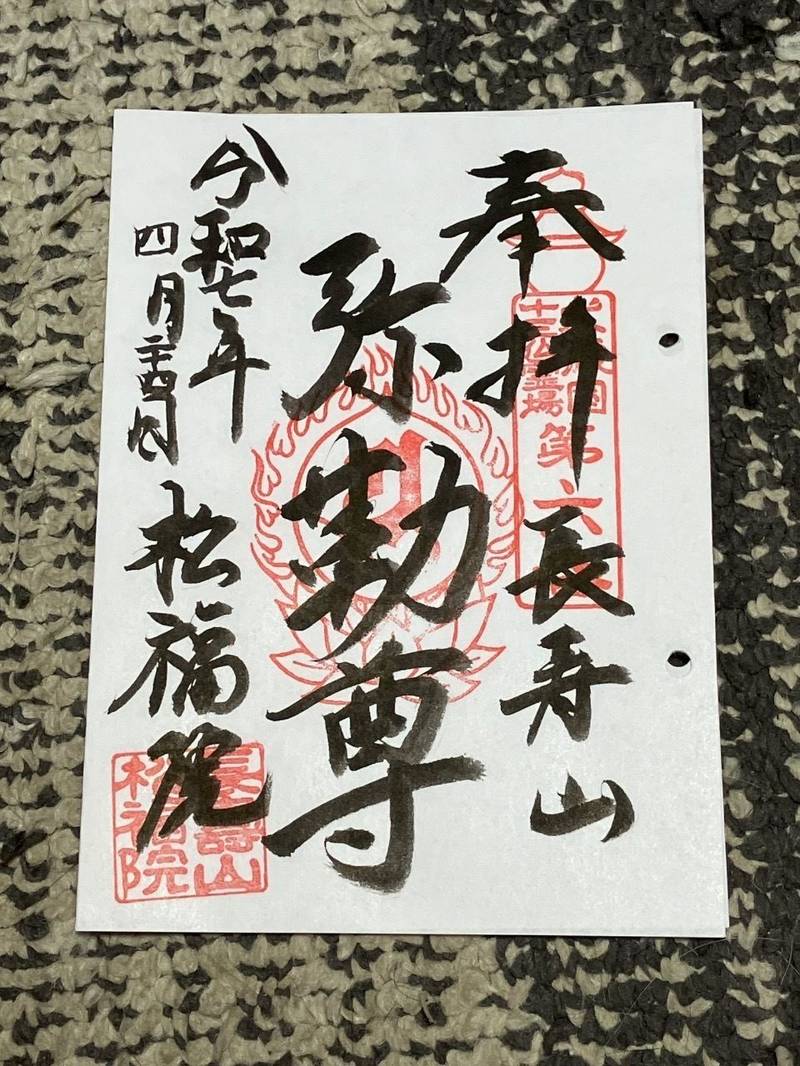 奉拝
長寿山
十三仏霊場
第六
弥勒尊
令和七年
四月二十四日
松福院
長壽山
松福院